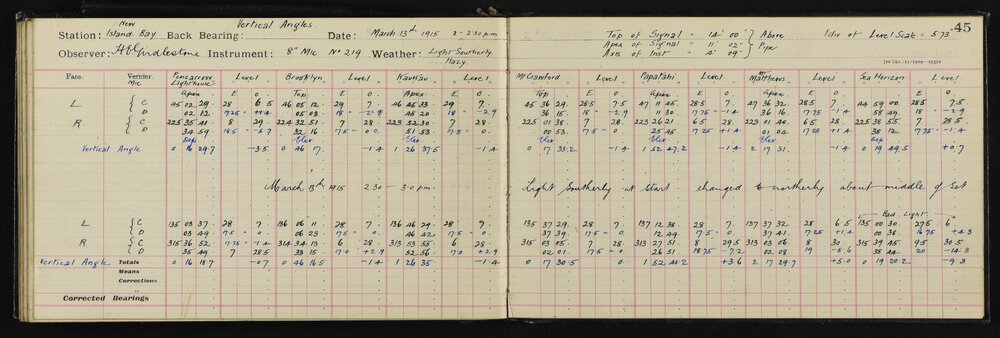 45
Vertical Angles.
New
Station: Island Bay Back Bearing: Date: March 13th 1915 2 - 2.30 p.m
Observer: H E Girdlestone Instrument: 8" Mic No 219 Weather: Light Southerly
Hazy.
Top of Signal = 14' 00" Above
Apex of Signal = 11' 02" Pipe
Axis of Inst = 4' 09"
1 div of Level Scale = 5.73
Face. Vernier. Mic Pencarrow Lighthouse Level Brooklyn Level Kaukau Level Mt Crawford Level Papatahi Level Mt Matthews Level Sea Horizon Level
Apex E O. Top E O. Apex E O. Top E O. Apex E O. Apex E O. E O.
L C 45 02 29 28 6.5 46 05 12 29 7 46 45 33 29 7 45 36 29 28.5 7.5 47 11 45 28.5 7 47 36 32 28.5 7 44 59 00 28.5 7.5
D 02 12 17.25 +1.4 05 03 18 -2.9 45 20 18 -2.9 36 15 18 -2.9 11 30 17.75 -1.4 36 16 17.75 -1.4 58 49 18 -2.9
R C 225 35 41 8 29 224 32 51 7 28 223 52 30 7 28 225 01 38 7 28 223 26 21 6.5 28 223 01 40 6.5 28 225 38 55 7 28.5
D 34 59 18.5 -5.7 32 16 17.5 0 51 53 17.5 0 00 53 17.5 0 25 45 17.25 +1.4 01 04 17.25 +1.4 38 12 17.75 -1.4
Dep Elev Elev Elev Elev Elev Dep
Vertical Angle 0 16 29.7 -3.5 0 46 17 -1.4 1 26 37.5 -1.4 0 17 33.2 -1.4 1 52 47.2 -1.4 2 17 31 -1.4 0 19 49.5 +0.7
March 13th 1915 2.30 - 3.0 p.m. Light Southerly at start changed to northerly about middle of set
Bad Light
L C 135 03 37 28 7 136 06 11 28 7 136 46 29 28 7 135 37 29 28 7 137 12 38 28 7 137 37 32 28 6.5 135 00 30 27.5 6
D 03 49 17.5 0 06 23 17.5 0 46 42 17.5 0 37 39 17.5 0 12 49 17.5 0 37 41 17.25 +1.4 00 38 16.75 +4.3
R C 315 36 52 7 28.5 314 34 13 6 28 313 53 55 6 28 315 03 05 7 28 313 27 51 8 29.5 313 03 06 8 30 315 39 45 9.5 30.5
D 35 49 17.75 -1.4 33 15 17.0 +2.9 52 56 17.0 +2.9 02 01 17.5 0 26 51 18.75 -7.2 02 08 19 -8.6 38 44 20 -14.3
Vertical Angle Totals 0 16 18.7 -0.7 0 46 16.5 -1.4 1 26 35 -1.4 0 17 30.5 0 1 52 41.2 +3.6 2 17 29.7 +5.0 0 19 20.2 -9.3
Means
Corrections
Corrected Bearings